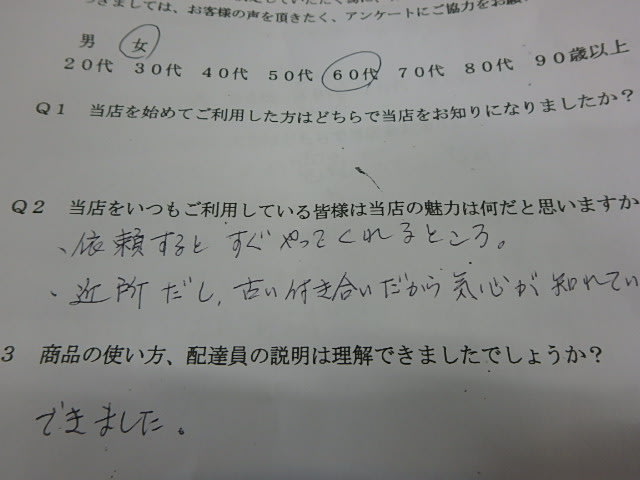 つきましては、お客様の声を頂きたく、アンケートにご協力をお願
男 女
20代 30代 40代 50代 60代 70代 80代 90歳以上
Q1 当店を始めてご利用した方はどちらで当店をお知りになりましたか?
Q2 当店をいつもご利用している皆様は当店の魅力は何だと思いますか
、依頼するとすぐやってくれるところ。
・近所だし、古い付き合いだから気心が知れてい
3 商品の使い方、配達員の説明は理解できましたでしょうか?
できました。